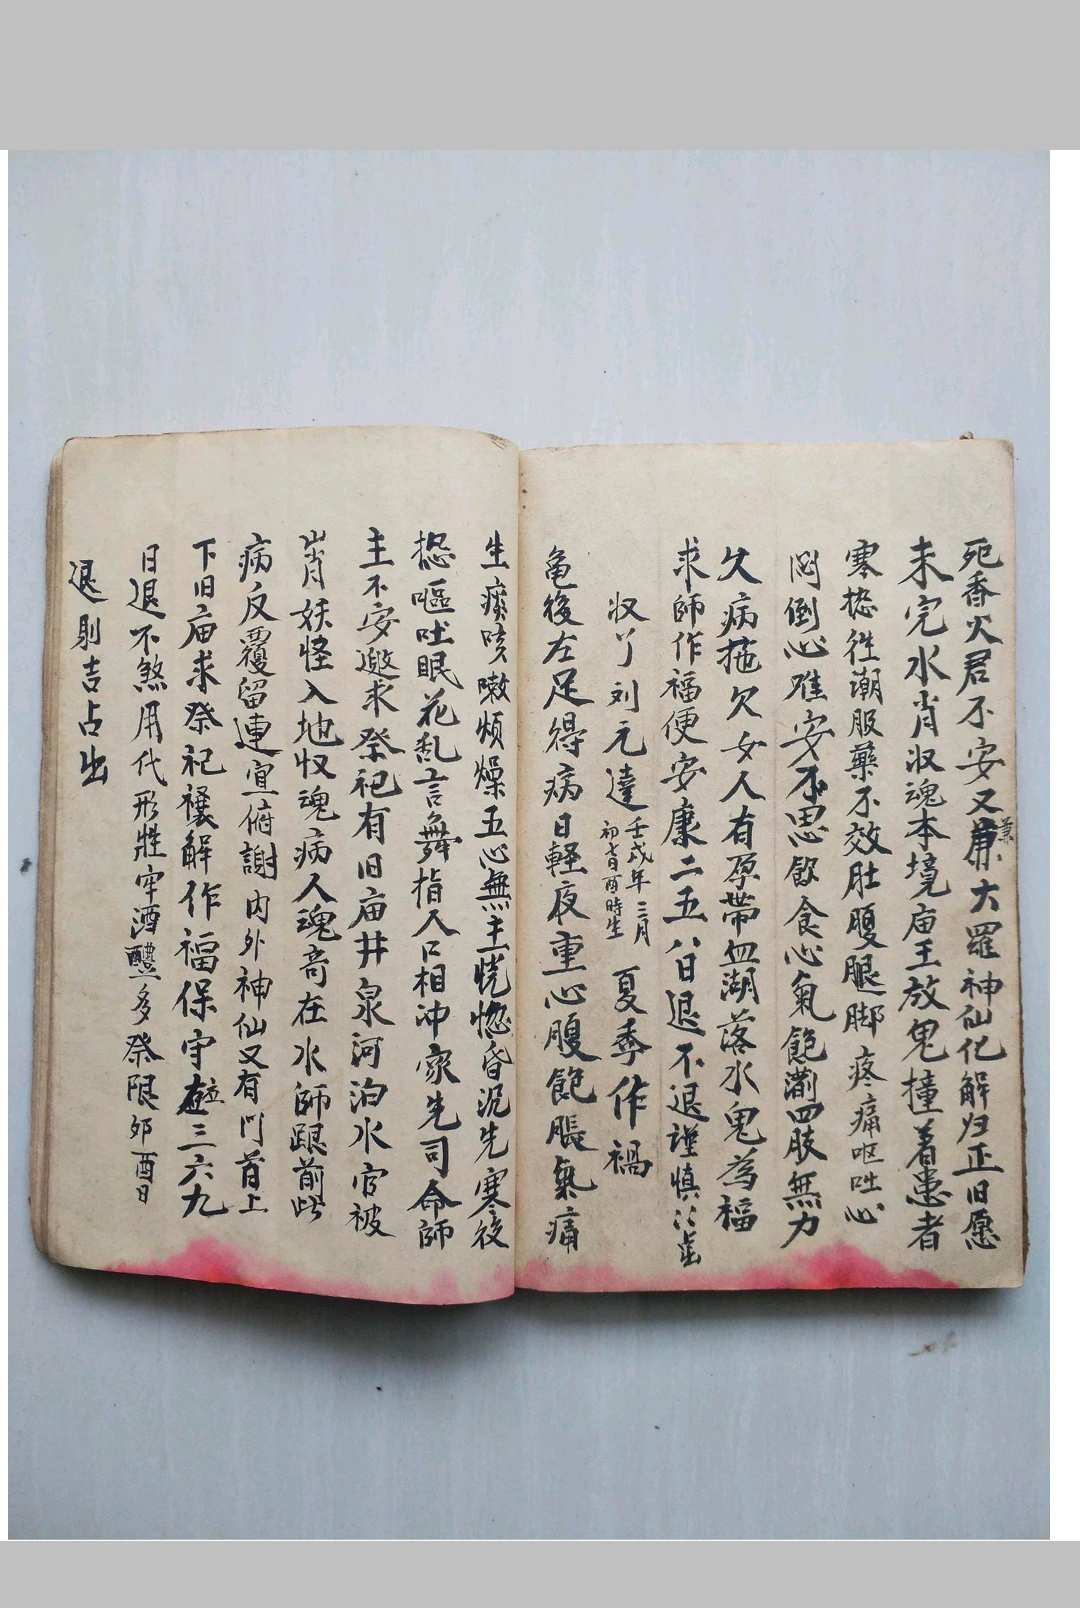 祀香火君不安又兼大羅神仙化解归正旧愿
未完水肖收魂本境庙王放鬼撞着患者
寒热往潮服藥不效肚腹腿脚疼痛呕吐心
悶倒心难安不思飲食心氣飽满四肢無力
久病拖欠女人有孕帶血湖落水鬼為福
求師作福便安康二五八日退不退謹慎
收丫刘元達壬戌年二月初酉時生夏季作禍
龟後左足得病日輕夜重心腹飽脹氣痛
生痰咳嗽煩燥五心無主恍惚昏沉先寒後
热嘔吐眠花乱言舞指人口相冲家先司命師
主不安邀求祭祀有旧庙井泉河泊水官被
山肖妖怪入地收魂病人魂奇在水師跟前此
病反覆留連宜俯謝內外神仙又有门首上
下旧庙求祭祀禳解作福保守在三六九
日退不煞用代形牲牢酒醴多祭限卯酉日
退則吉占出